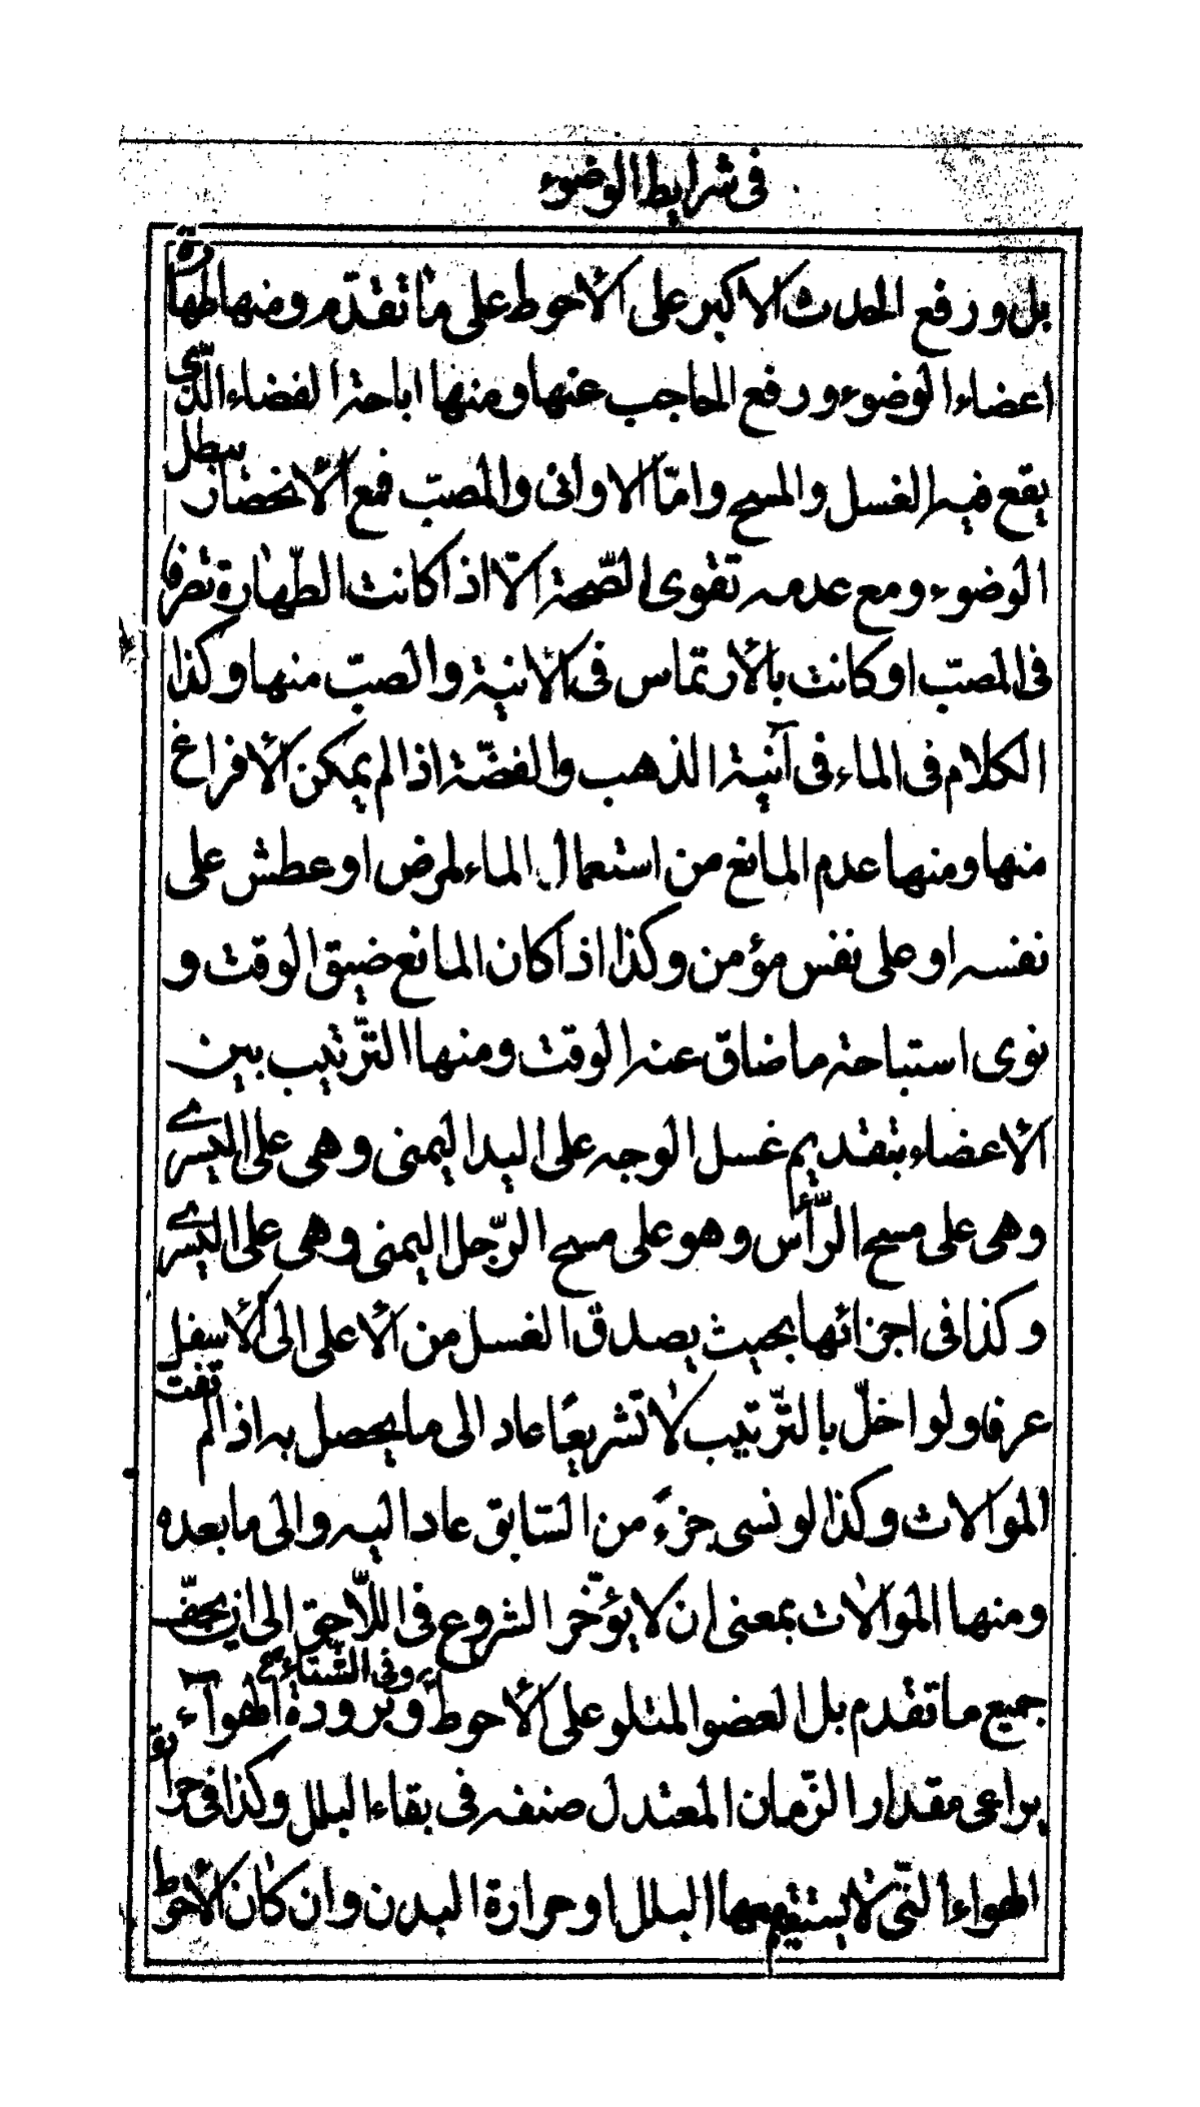 في شرايط الوضوء
بل ورفع الحدث الاكبر على الأحوط على ما تقدّم ومنها طهارة
اعضاء الوضوء ورفع الحاجب عنها ومنها اباحة الفضاء الّذي
يقع فيه الغسل والمسح وامّا الاواني والمصبّ فمع الأنحصار يبطل
الوضوء ومع عدمه تقوى الصّحة الّا اذا كانت الطّهارة تصرفا
في المصبّ او كانت بالأرتماس في الأنية والصبّ منها وكذا
الكلام في الماء في آنية الذهب والفضّة اذا لم يمكن الأفراغ
منها ومنها عدم المانع من استعمال الماء لمرض او عطش على
نفسه او على نفس مؤمن وكذا اذا كان المانع ضيق الوقت و
نوى استباحة ما ضاق عنه الوقت ومنها التّرتيب بين
الأعضاء بتقديم غسل الوجه على اليد اليمنى وهي على اليسرى
وهي على مسح الرّأس وهو على مسح الرّجل اليمنى وهي على اليسرى
وكذا في اجزائها بحيث يصدق الغسل من الأعلى الى الأسفل
عرفا ولو اخلّ بالتّرتيب لا تشريعًا عاد الى ما يحصل به اذا لم تفت
الموالات وكذا لو نسى جزءً من السّابق عاد اليه والى ما بعده
ومنها الموالات بمعنى ان لا يؤخّر الشروع في اللّاحق الى ان يجفّ
جميع ما تقدم بل العضو المتلو على الأحوط وفي الشتاء وبرودة الهوآء
يراعى مقدار الزّمان المعتدل صنفه في بقاء البلل وكذا في حرارة
الهواء الّتي لا يستقيم معها البلل او حرارة البدن وان كان الأحوط